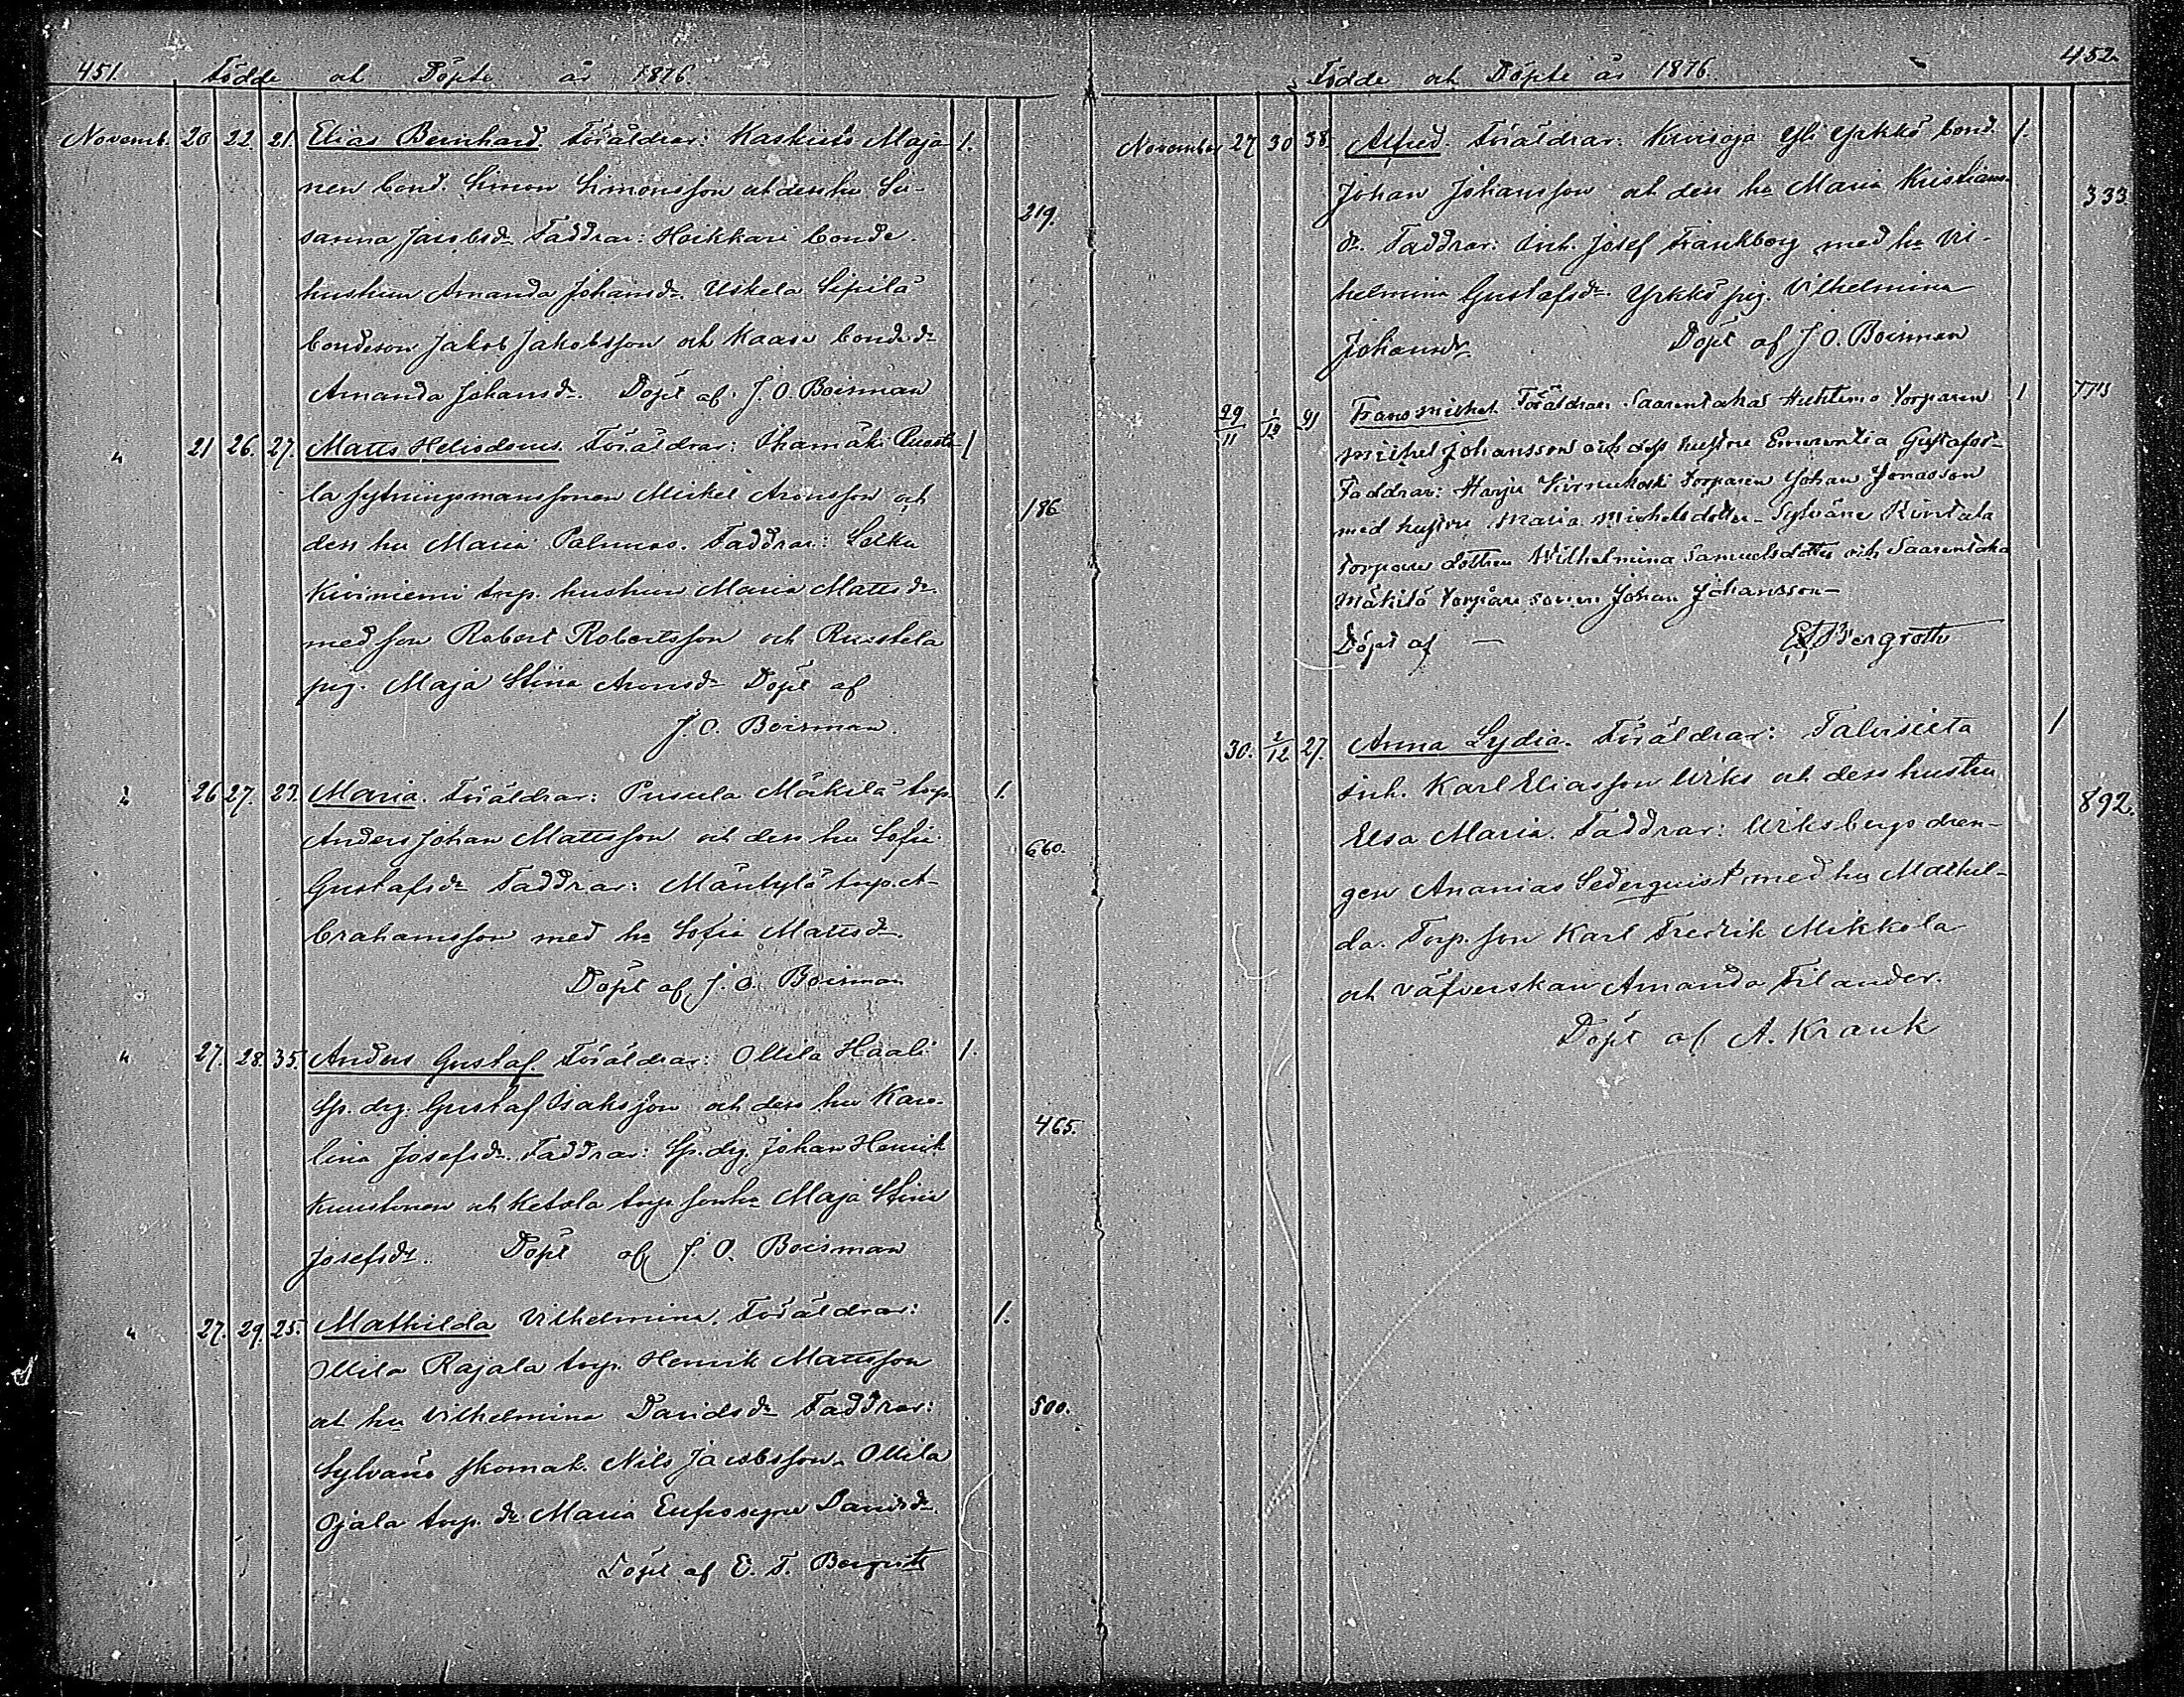 451. Födde och Döpte år 1876.
Novemb. 20 22. 21. Elias Bernhard. Föräldrar: Kaskistö Maja- 1.
nen bond. Simon Simonsson och dess hu Su-
sanna Jacobsdr. Faddrar: Heikkari bonde- 219.
hustrun Amanda Johansdr. Uskela Sipilä
bondeson Jakob Jakobsson och Kaase bondedr
Amanda Johansdr. Döpt af J. O. Boisman
" 21 26. 27. Matts Heliodorus. Föräldrar: Ihamäki Ruoste- 1
la sytningsmanssonen Mickel Aronsson och 186
dess hu Maria Palmroos. Faddrar:
Kiviniemi torp. hustrun Maria Mattsdr
med son Robert Robertsson och Ruostela
pig. Maja Stina Aronsdr Döpt af
J. O. Boisman.
" 26 27. 23. Maria. Föräldrar: Pusula Mäkilä torp. 1.
Anders Johan Mattsson och dess hu Sofia 660.
Gustafsdr Faddrar: Mäntylä torp. A-
brahamsson med hu Sofia Mattsdr.
Döpt af J. O. Boisman
" 27. 28. 35. Anders Gustaf. Föräldrar: Ollila Haali 1.
Sp. drg. Gustaf Isaksson och dess hu Karo-
lina Josefsdr. Faddrar: Sp. drg. Johan Henrik 465.
Kuustonen och Ketola torp. sonhu Maja Stina
Josefsdr. Döpt af J. O. Boisman
" 27. 29. 25. Mathilda Vilhelmina. Föräldrar: 1.
Ollila Rajala torp. Henrik Mattsson
och hu Vilhelmina Davidsdr Faddrar: 500.
Sylvänä skomak. Nils Jacobsson. Ollila
Ojala torp. dr Maria Eufrosyne Davidsdr.
Döpt af E. F. Bergroth
Födde och Döpte år 1876. 452.
November 27 30 38. Alfred. Föräldrar: Kurisoja Yli Yrkkö bond. 1.
Johan Johansson och dess hu Maria Kristians- 333.
dr. Faddrar: Inh. Josef Frankborg med hu Vil-
helmina Gustafsdr. Yrkkö pig. Vilhelmina
Johansdr. Döpt af J. O. Boisman
29/11 1/12 91 Frans Michel. Föräldrar. Saarentaka Huhtimo Torparen 1
Michel Johansson och dess hustru Emerentia Gustafsd-
Faddrar: Harju Kirmukoski Torparen Johan Jonasson
med hustru Maria Michelsdotter- Sylväne Rintala
Torpare dottren Wilhelmina Samuelsdotter och Saarentaka
Mäkilä Torpare sonen Johan Johansson-
Döpt af – E. F. Bergroth
30. 2/12 27. Anna Lydia. Föräldrar: Talvisieta 1
inh. Karl Eliasson Urks och dess hustru
Elsa Maria. Faddrar: Urksbergs dren- 892.
gen Ananias Sederquist med hu Mathil-
da. Torp. son Karl Fredrik Mikkola
och väfverskan Amanda Filander.
Döpt af A. Krank